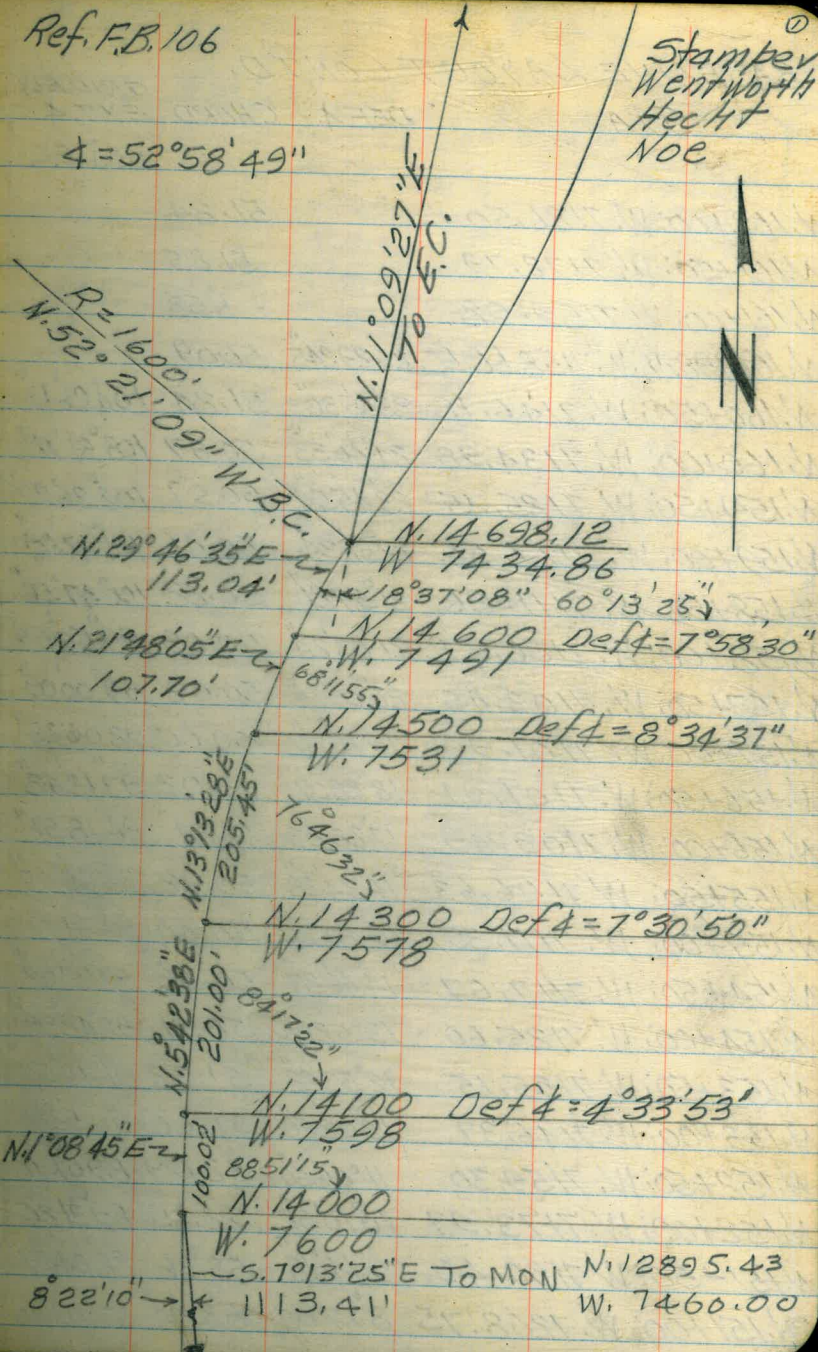 ①
Ref. F.B. 106
Stamper
Wentworth
Hecht
Noe
∡=52°58'49"
N.11°09'27"E
TO E.C.
R=1600'
N.52°21'09"W B.C.
N
N.14698.12
W 7434.86
N.29°46'35"E
113.04'
18°37'08" 60°13'25"
N.14600 Def∡=7°58'30"
W. 7491
N.21°48'05"E
107.70'
68°11'55"
N.14500 Def∡=8°34'37"
W. 7531
N.13°13'28"E
205.45'
76°46'32"
N.14300 Def∡=7°30'50"
W. 7578
N.5°42'38"E
201.00'
84°17'22"
N.14100 Def∡=4°33'53"
W. 7598
N.1°08'45"E
100.02'
88°51'15"
N.14000
W. 7600
S.7°13'25"E TO MON N.12895.43
8°22'10" 1113.41' W. 7460.00